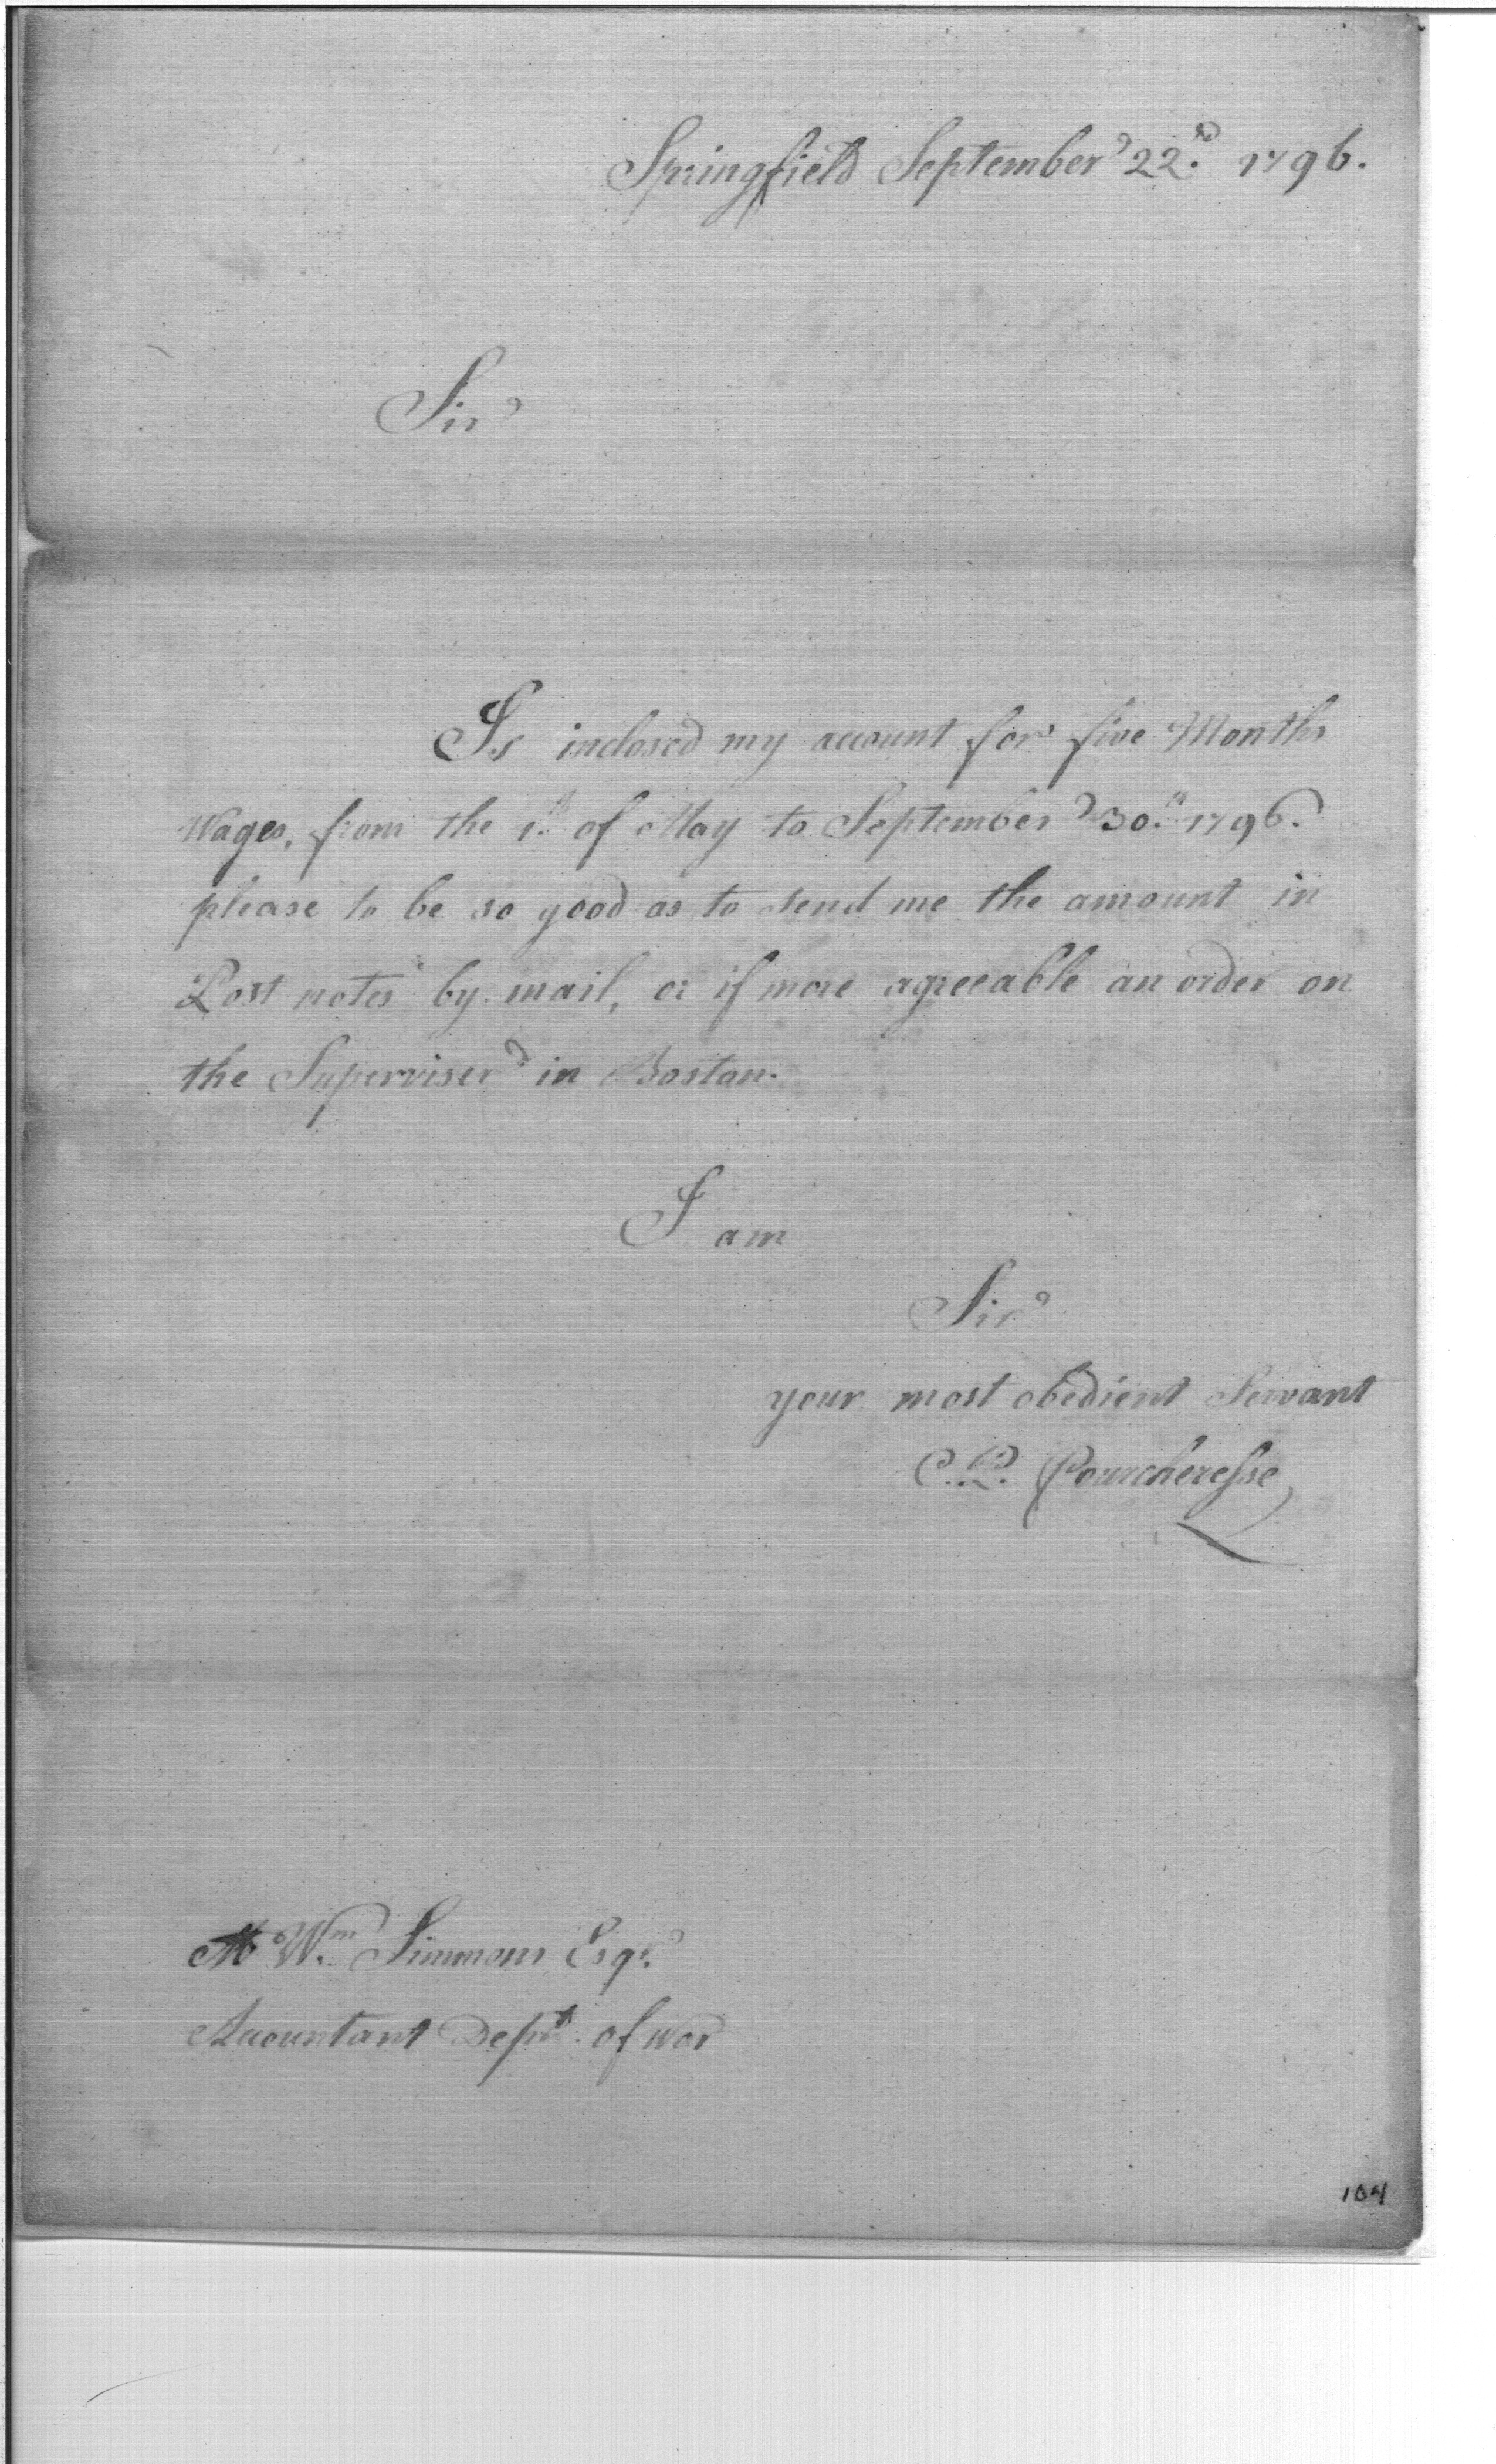 Springfield September 22.d 1796.
Sir
Is inclosed my account for five Months
Wages, from the 1.st of May to September 30.th 1796.
please to be so good as to send me the amount in
Post notes by mail, or if more agreeable an order on
the Superviser in Boston.
I am
Sir
your most obedient Servant
C. P. Pourcheresse
Mr Wm Simmons Esqr.
Accountant Dept. of war
104